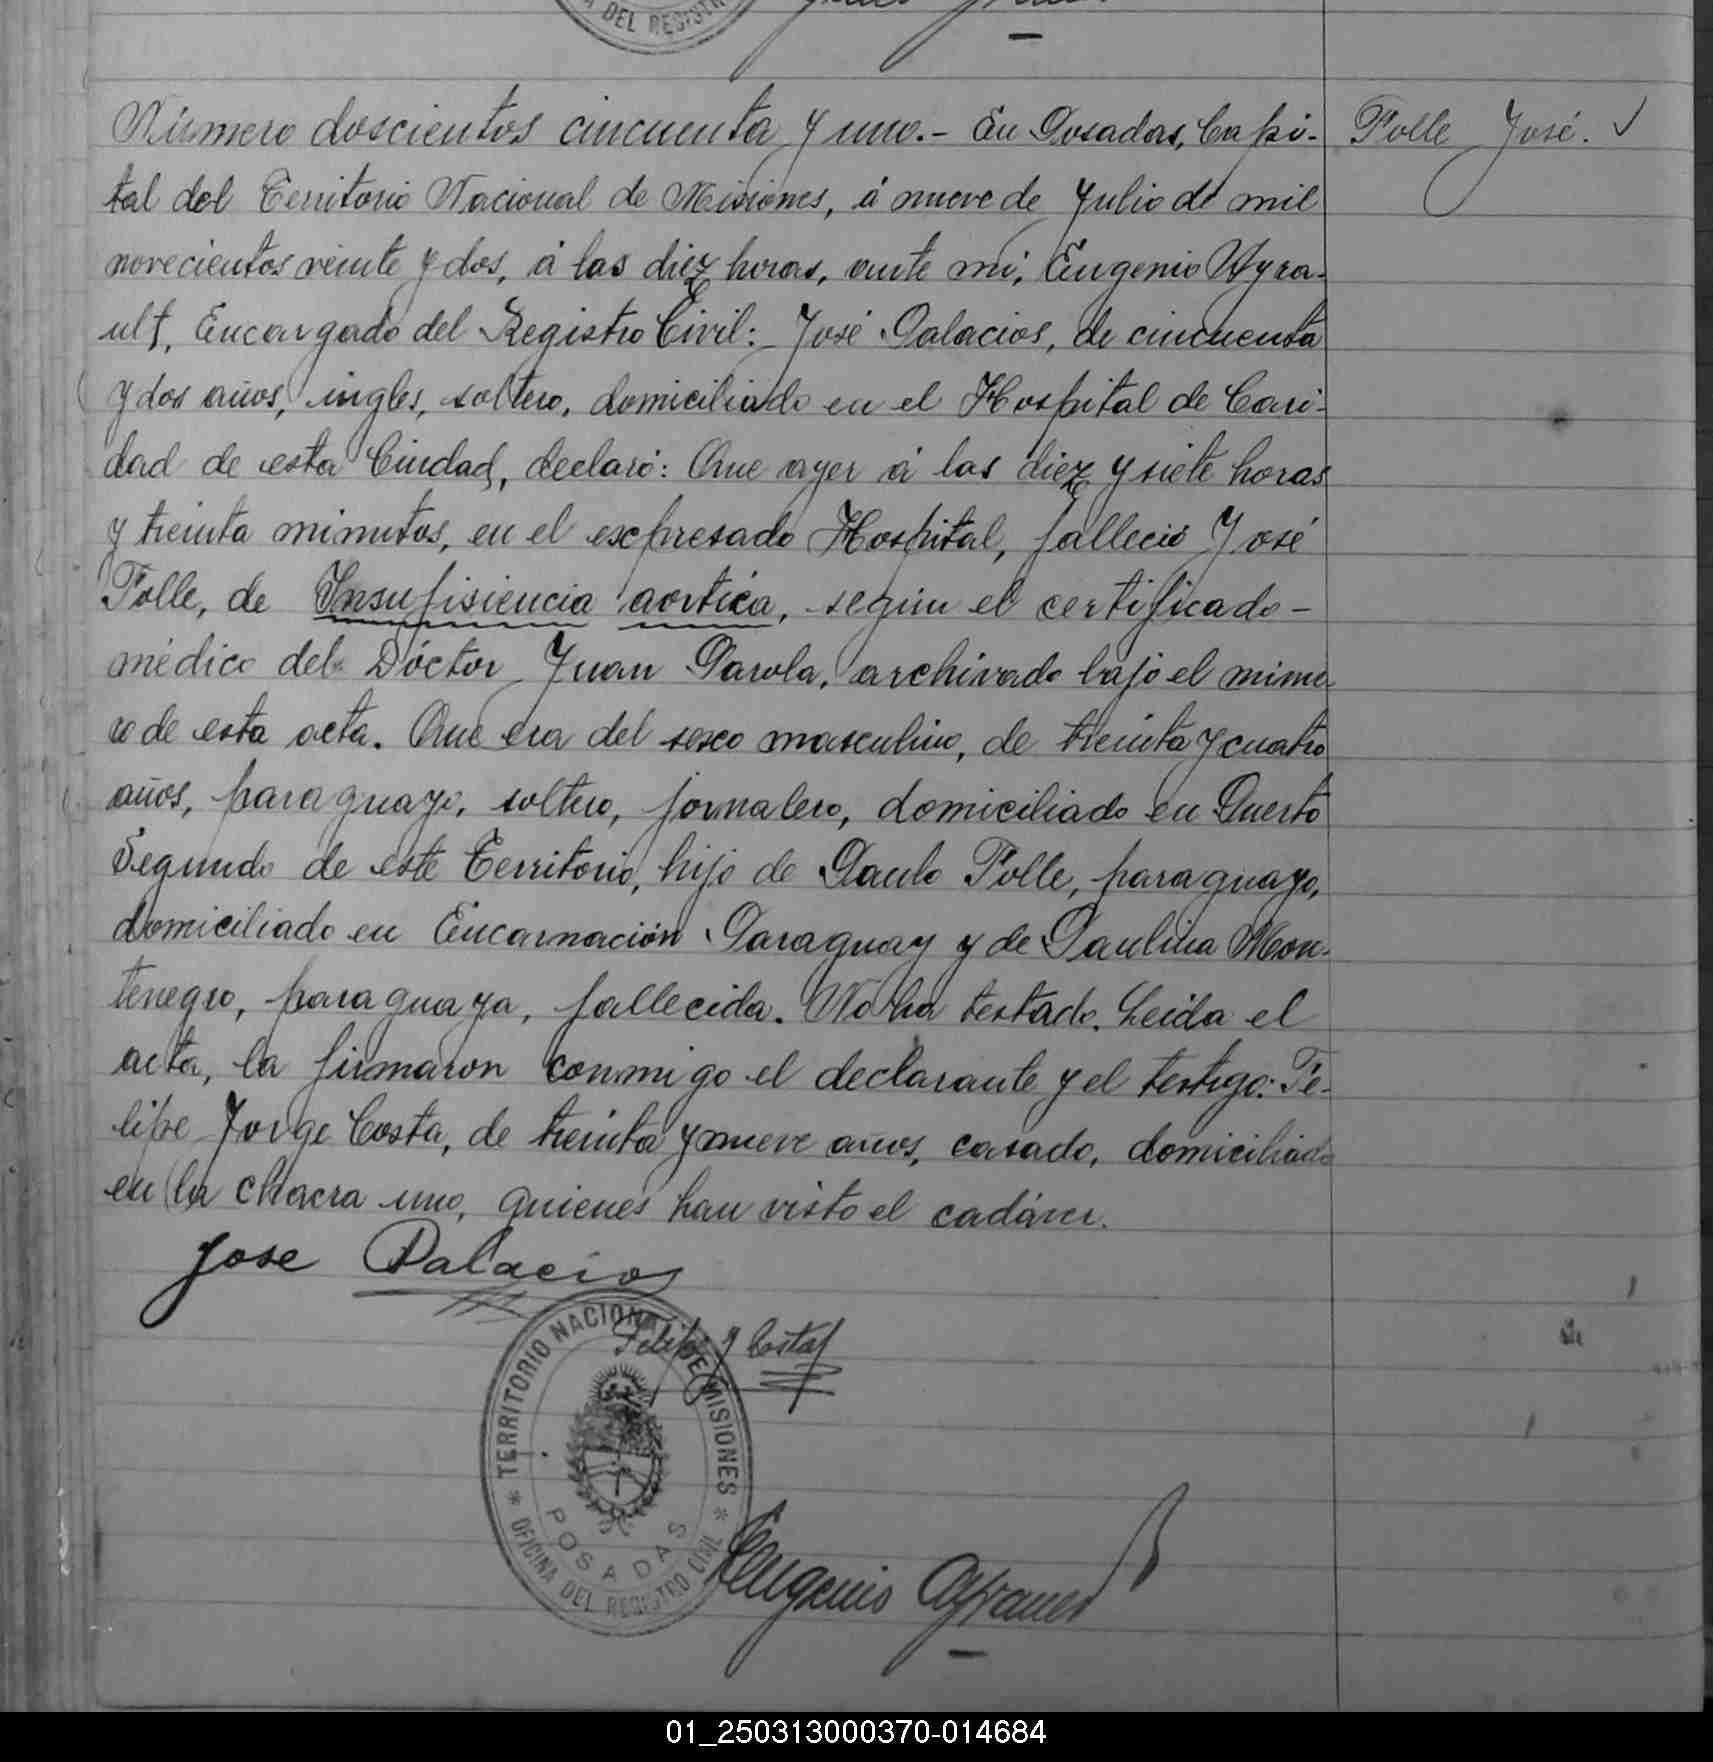 DEL REGISTR
Número doscientos cincuenta y uno.- En Posadas, Capi-
tal del Territorio Nacional de Misiones, á nueve de Julio de mil
novecientos veinte y dos, á las diez horas, ante mi, Eugenio Ayra-
ult, Encargado del Registro Civil: José Palacios, de cincuenta
y dos años, ingles, soltero, domiciliado en el Hospital de Cari-
dad de esta Ciudad, declaró: Que ayer á las diez y siete horas
y treinta minutos, en el expresado Hospital, falleció José
Folle, de Insufisiencia aortica, según el certificado-
médico del Dóctor Juan Parola, archivado bajo el núme-
ro de esta acta. Que era del sexo masculino, de treinta y cuatro
años, paraguayo, soltero, jornalero, domiciliado en Puerto
Segundo de este Territorio, hijo de Paulo Folle, paraguayo,
domiciliado en Encarnación Paraguay y de Paulina Mon-
tenegro, paraguaya, fallecida. No ha testado. Leida el
acta, la firmaron conmigo el declarante y el testigo: Fe-
lipe Jorge Costa, de treinta y nueve años, casado, domiciliado
en la chacra uno, quienes han visto el cadáver.
Folle José.
Jose Palacios
Felipe J Costa
TERRITORIO NACIONAL DE MISIONES
OFICINA DEL REGISTRO CIVIL
POSADAS
Eugenio Ayrault
01_250313000370-014684